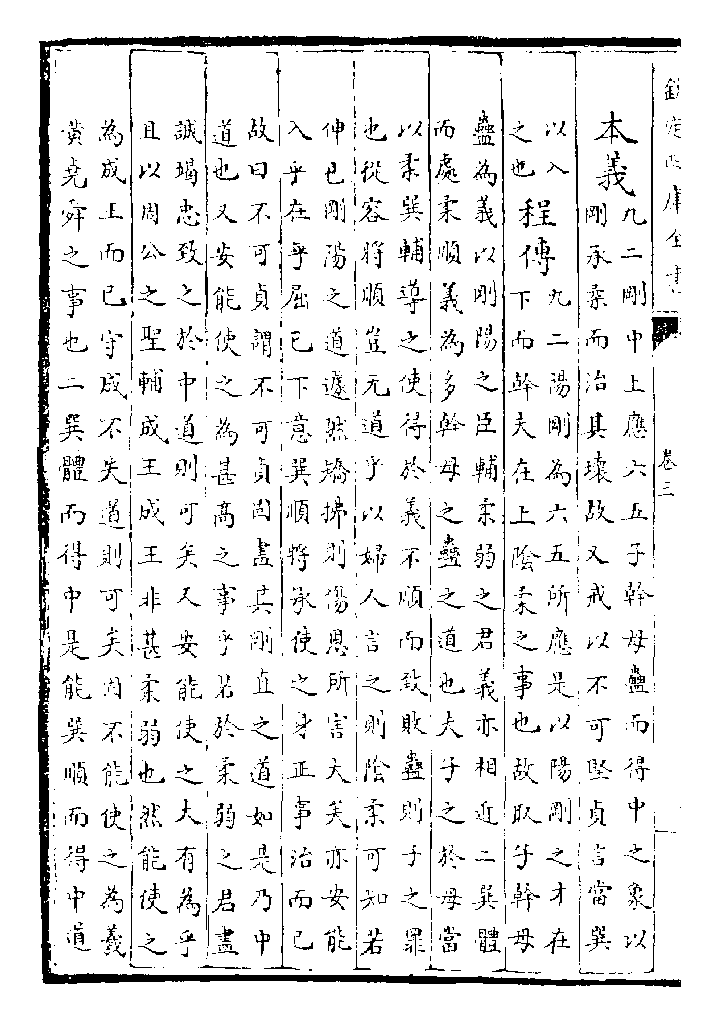 欽定四庫全書 卷三
本義
九二剛中上應六五子幹母蠱而得中之象以
剛承柔而治其壞故又戒以不可堅貞言當巽
以入
之也
程傳
九二陽剛為六五所應是以陽剛之才在
下而幹夫在上陰柔之事也故取子幹母
蠱為義以剛陽之臣輔柔弱之君義亦相近二巽體
而處柔順義為多幹母之蠱之道也夫子之於母當
以柔巽輔導之使得於義不順而致敗蠱則子之罪
也從容將順豈无道乎以婦人言之則陰柔可知若
伸已剛陽之道遽然矯拂則傷恩所害大矣亦安能
入乎在乎屈已下意巽順將承使之身正事治而已
故曰不可貞謂不可貞固盡其剛直之道如是乃中
道也又安能使之為甚高之事乎若於柔弱之君盡
誠竭忠致之於中道則可矣又安能使之大有為乎
且以周公之聖輔成王成王非甚柔弱也然能使之
為成王而已守成不失道則可矣固不能使之為羲
黃堯舜之事也二巽體而得中是能巽順而得中道